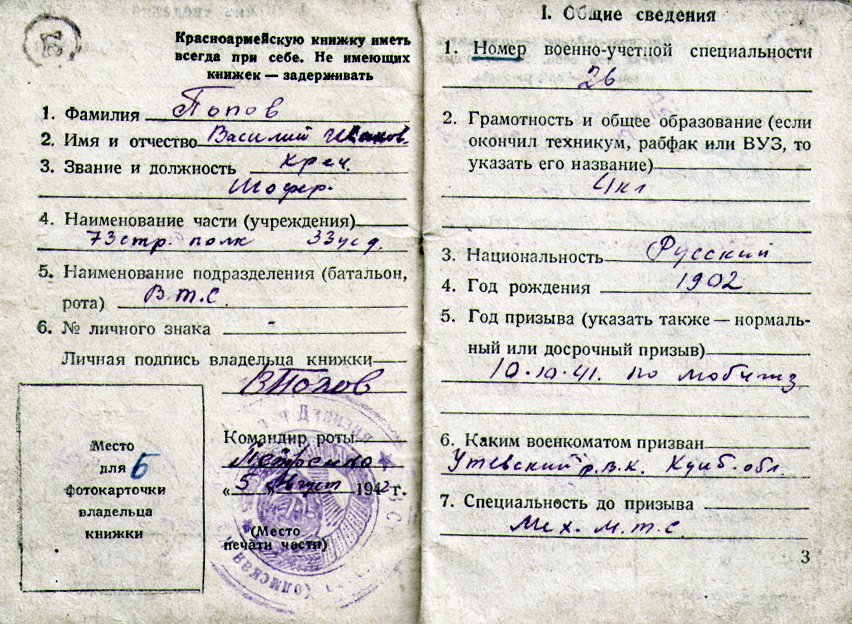 Красноармейскую книжку иметь
всегда при себе. Не имеющих
книжек — задерживать
1. Фамилия Попов
2. Имя и отчество Василий Иванов.
3. Звание и должность Кр-ец.
Шофер.
4. Наименование части (учреждения)
73 стр. полк 33 усд.
5. Наименование подразделения (батальон,
рота) В.т.С.
6. № личного знака -
Личная подпись владельца книжки
ВПопов
Место
для Б
фотокарточки
владельца
книжки
Командир роты
«5 Август 1942 г.
(Место
печати части)
I. Общие сведения
1. Номер военно-учетной специальности
26
2. Грамотность и общее образование (если
окончил техникум, рабфак или ВУЗ, то
указать его название)
4 кл
3. Национальность Русский
4. Год рождения 1902
5. Год призыва (указать также — нормаль-
ный или досрочный призыв)
10.10.41. по мобилиз
6. Каким военкоматом призван
Утевский р.В.К. Куйб. обл.
7. Специальность до призыва
Мех. М.Т.С.
3